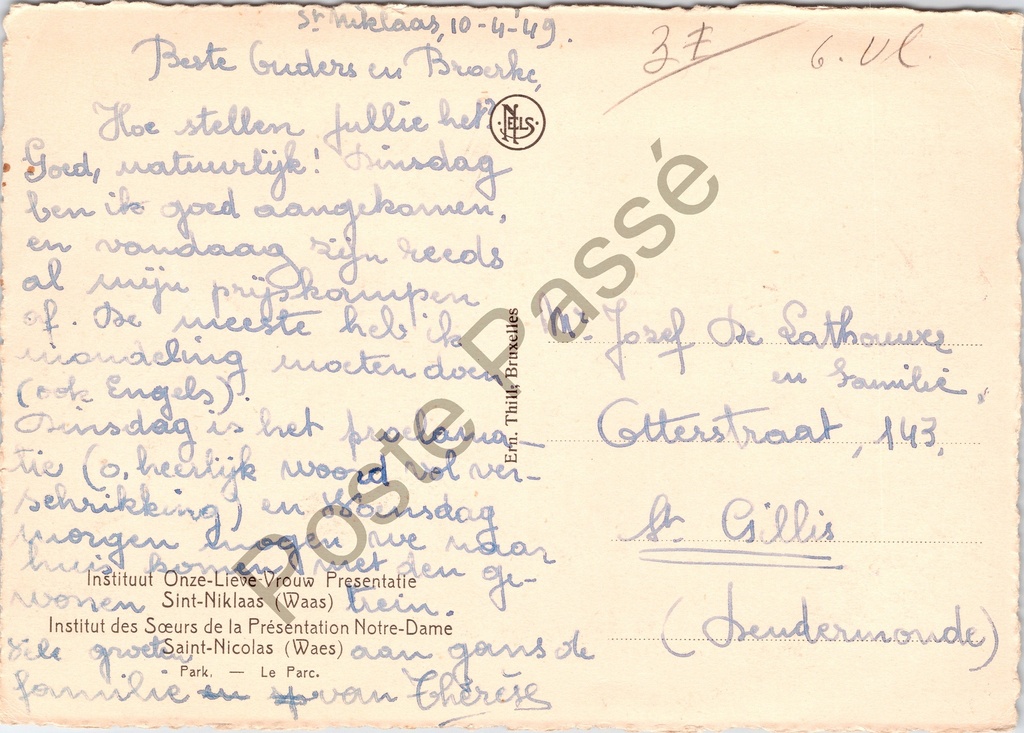 St Niklaas, 10-4-'49.
Beste Ouders en Broerke,
Hoe stellen jullie het?
Goed, natuurlijk! Dinsdag
ben ik goed aangekomen,
en vandaag zijn reeds
al mijn prijskampen
af. De meeste heb ik
mondeling moeten doen
(ook Engels).
Dinsdag is het proclama-
tie (o, heerlijk woord vol ver-
schrikking) en Woensdag
morgen mogen we naar
huis komen, met den ge-
wonen trein.
Vele groeten aan gans de
familie van Thérèse
Instituut Onze-Lieve-Vrouw Presentatie
Sint-Niklaas (Waas)
Institut des Sœurs de la Présentation Notre-Dame
Saint-Nicolas (Waes)
Park. — Le Parc.
NELS
Ern. Thill, Bruxelles
6. Vl.
Mr. Josef De Lathouwer
en Familie,
Otterstraat, 143,
St Gillis
(Dendermonde)
Poste Passé